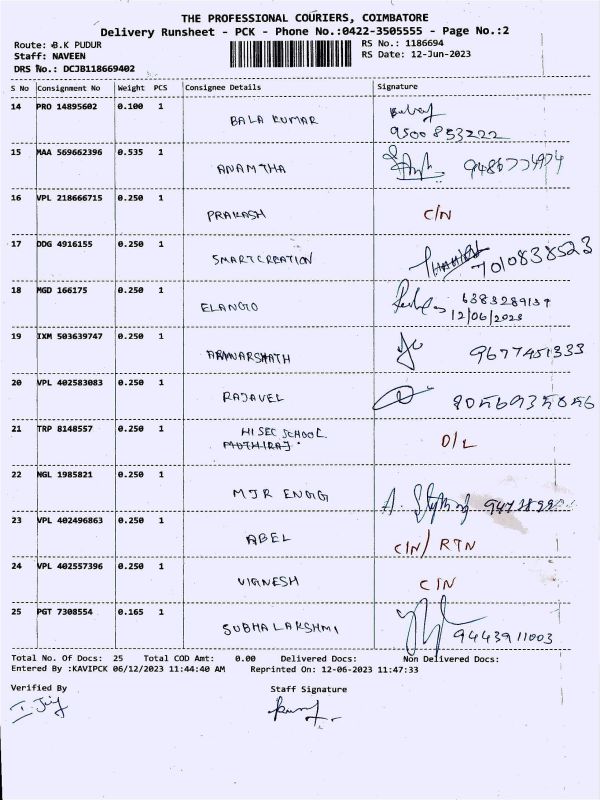 THE PROFESSIONAL COURIERS, COIMBATORE
Delivery Runsheet - PCK - Phone No.:0422-3505555 - Page No.:2
Route: B.K PUDUR RS No.: 1186694
Staff: NAVEEN RS Date: 12-Jun-2023
DRS No.: DCJB118669402
S No Consignment No Weight PCS Consignee Details Signature
14 PRO 14895602 0.100 1
BALA KUMAR
9500853222
15 MAA 569662396 0.535 1
ANAMTHA 9486774974
16 VPL 218666715 0.250 1
PRAKASH C/N
17 DDG 4916155 0.250 1
SMARTCREATION 7010838523
18 MGD 166175 0.250 1
ELANGO 6383289137
12/06/2023
19 IXM 503639747 0.250 1
9677451333
20 VPL 402583083 0.250 1
RAJAVEL 8056935856
21 TRP 8148557 0.250 1
HI SEC SCHOOL
MUTHIRAJ D/L
22 NGL 1985821 0.250 1
MJR ENGG
23 VPL 402496863 0.250 1
ABEL C/N/ RTN
24 VPL 402557396 0.250 1
VIGNESH C/N
25 PGT 7308554 0.165 1
SUBHALAKSHMI 9443911003
Total No. Of Docs: 25 Total COD Amt: 0.00 Delivered Docs: Non Delivered Docs:
Entered By :KAVIPCK 06/12/2023 11:44:40 AM Reprinted On: 12-06-2023 11:47:33
Verified By Staff Signature